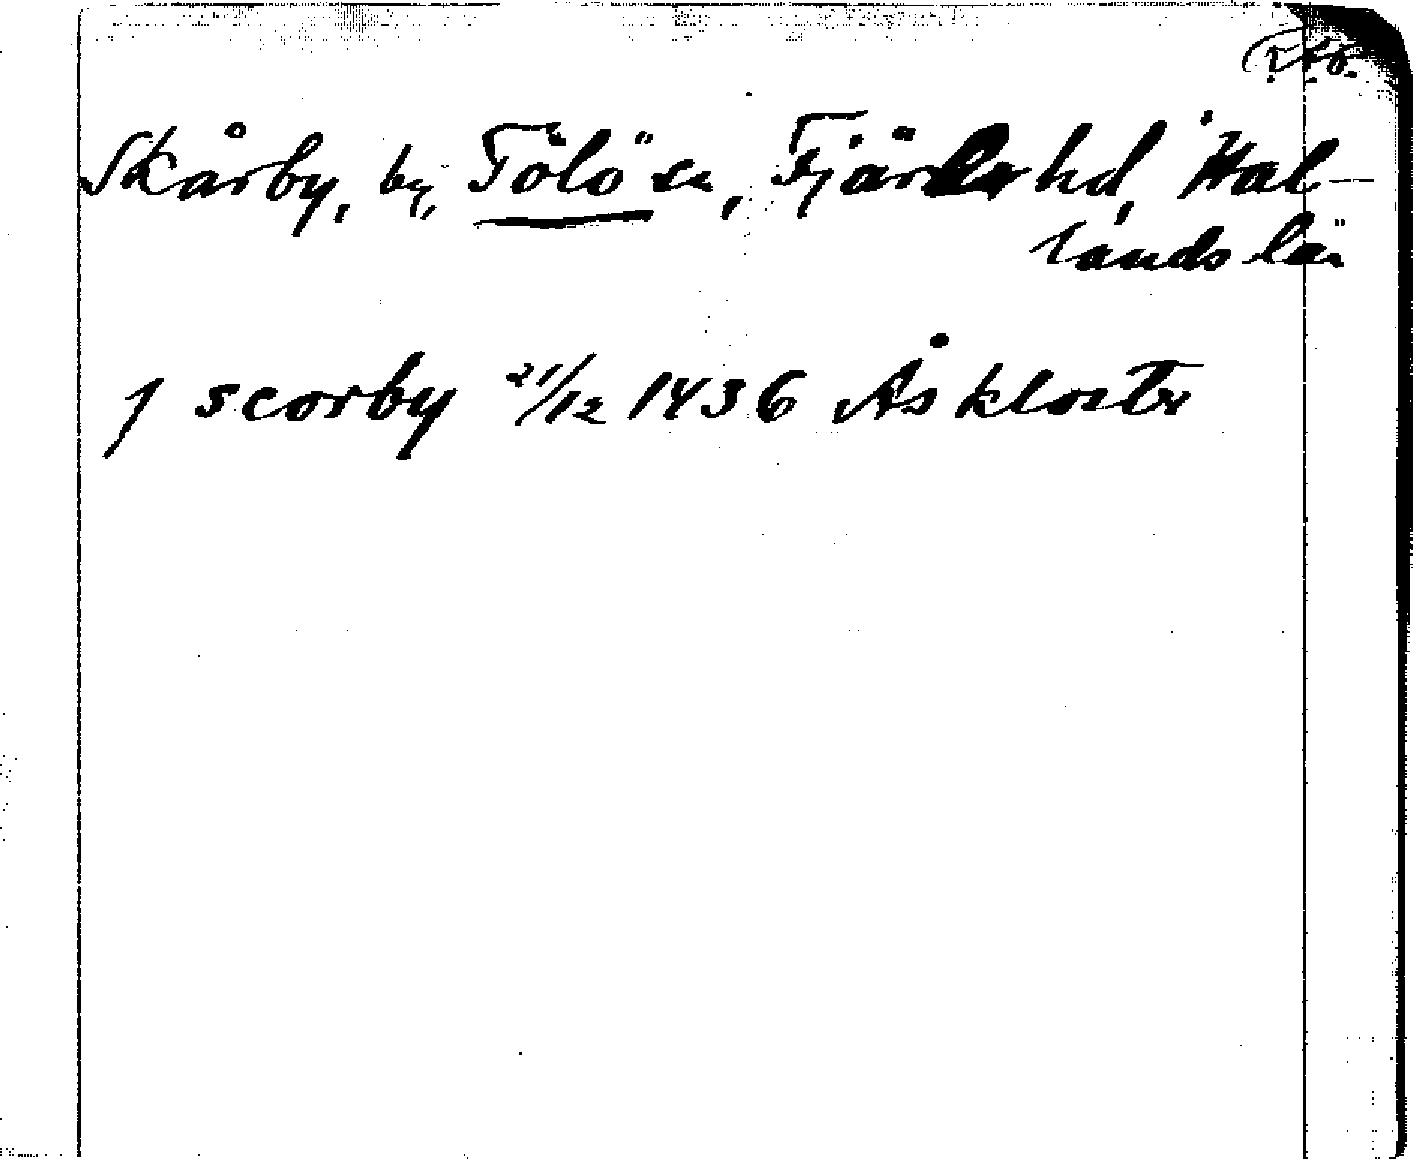 Skårby, by, Tölö sn, Fjäre hd, Hal-
lands län
j scorby 21/12 1436 Ås kloster